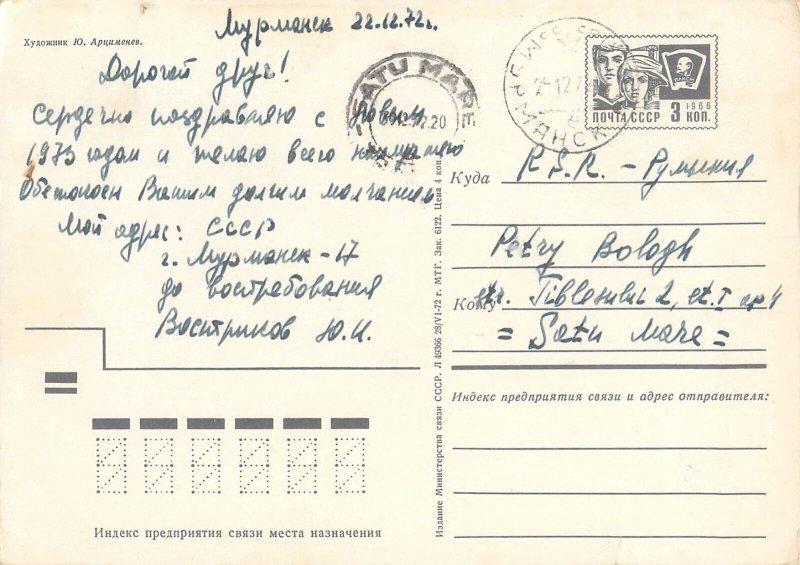 Мурманск 22.12.72г.
Художник Ю. Арцименев.
Дорогой друг!
Сердечно поздравляю с Новым
1973 годом и желаю всего
Обеспокоен Вашим долгим молчанием
Мой адрес: СССР
г. Мурманск-17
до востребования
Востриков Ю.И.
SATU MARE
МУРМАНСК
1966
ПОЧТА СССР 3 КОП.
ВЛКСМ
Куда R.S.R. - Румыния
Petry Bologh
Кому str. Tiblesului 2, et. I ap 4
= Satu Mare =
Индекс предприятия связи и адрес отправителя:
Индекс предприятия связи места назначения
Издание Министерства связи СССР. Л 49366 28/VI-72 г. МТГ. Зак. 6122. Цена 4 коп.